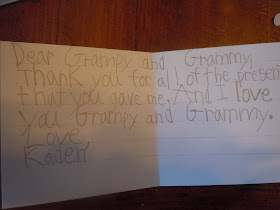 Dear Grampy and Grammy,
Thank you for all of the presen
that you gave me. And I love
you Grampy and Grammy.
Love
Kaden